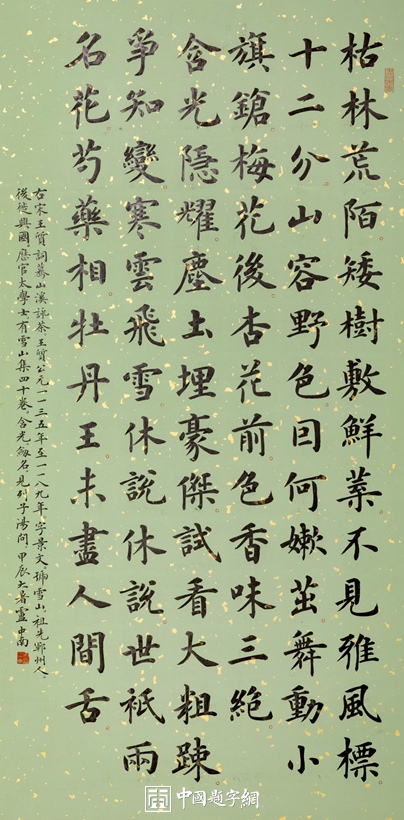 枯林荒陌矮樹敷鮮葉不見雅風標
十二分山容野色囙何嫩茁舞動小
旗鎗梅花後杏花前色香味三絶
含光隱耀塵土埋豪傑試看大粗踈
爭知變寒雲飛雪休說休說世衹兩
名花芍藥相牡丹王未盡人間舌
右宋王質詞驀山溪詠茶王質公元一一三五年至一一八九年字景文號雪山祖先鄆州人
後徙興國歷官太學士有雪山集四十卷含光劒名見列子湯問甲辰大暑盧中南
中國題字網